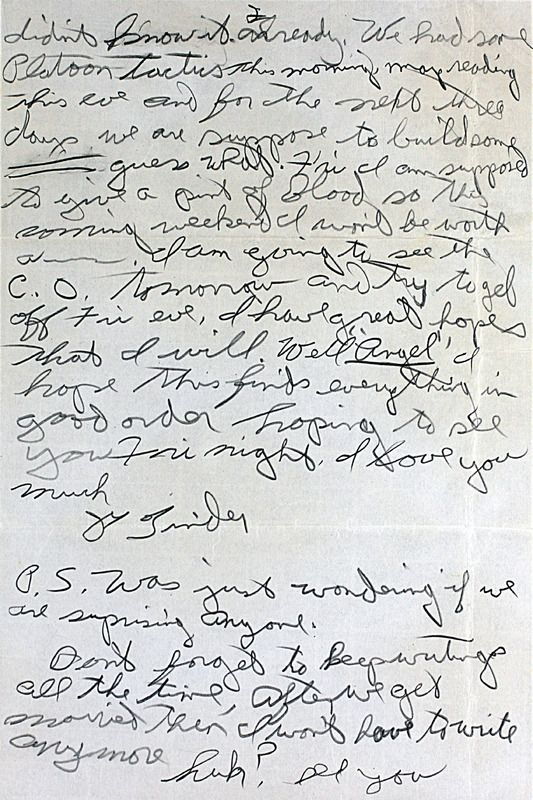 didn't know it already. We had some
Platoon tactics this morning map reading
this eve and for the next three
days we are suppose to build some
guess what. Fri I am supposed
to give a pint of blood so this
coming weekend I won't be worth
a . I am going to see the
C. O. tomorrow and try to get
off Fri eve, I have great hopes
that I will. Well "Angel", I
hope this finds everything in
good order hoping to see
you Fri night. I love you
much
P.S. Was just wondering if we
are suprising anyone.
Don't forget to keep writing
all the time, After we get
married then I won't have to write
anymore
huh? see you